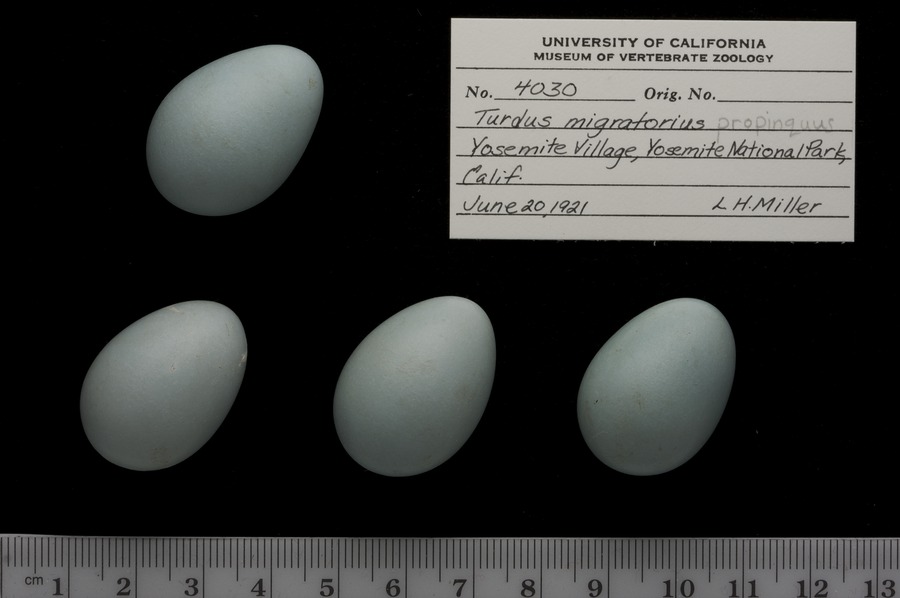 UNIVERSITY OF CALIFORNIA
MUSEUM OF VERTEBRATE ZOOLOGY
No. 4030 Orig. No.
Turdus migratorius propinquus
Yosemite Village, Yosemite National Park,
Calif.
June 20, 1921 L H. Miller
cm 1 2 3 4 5 6 7 8 9 10 11 12 13